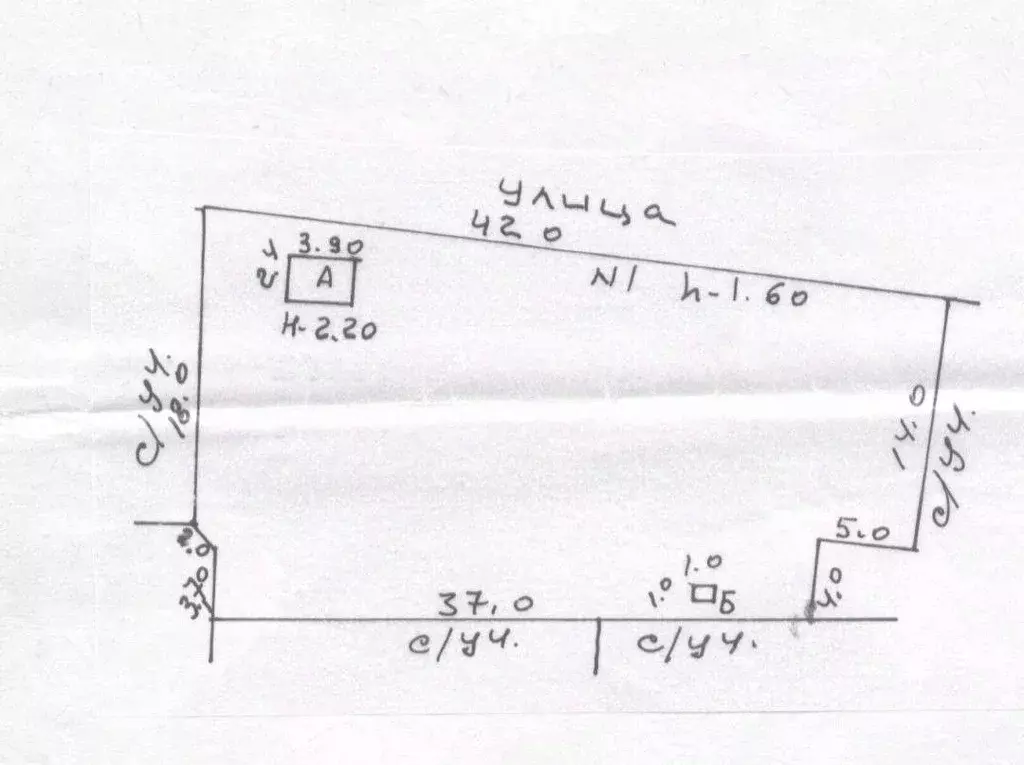 улица
42.0
N1 h-1.60
3.90
А
Н-2.20
с/уч.
18.0
14.0
с/уч.
2.0
3.70
5.0
4.0
1.0
1.0
Б
37,0
с/уч.
с/уч.